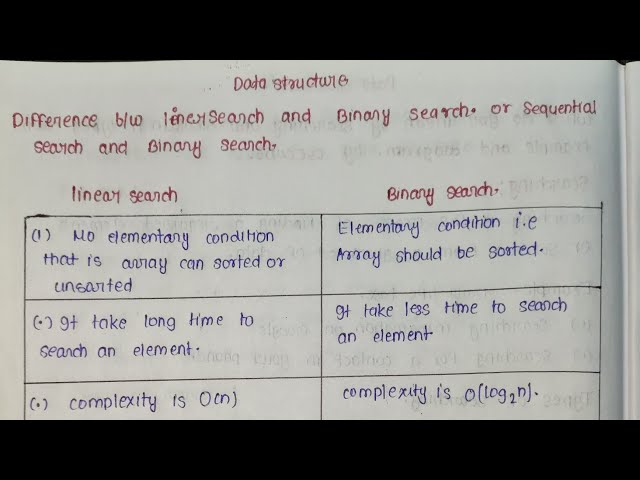 Data structure
Difference b/w linearsearch and Binary search. or sequential
search and Binary search.
linear search
Binary search.
(1) No elementary condition
that is array can sorted or
unsarted
Elementary condition i.e
Array should be sorted.
(.) It take long time to
search an element.
It take less time to search
an element
(.) complexity is O(n)
complexity is O(log₂n).